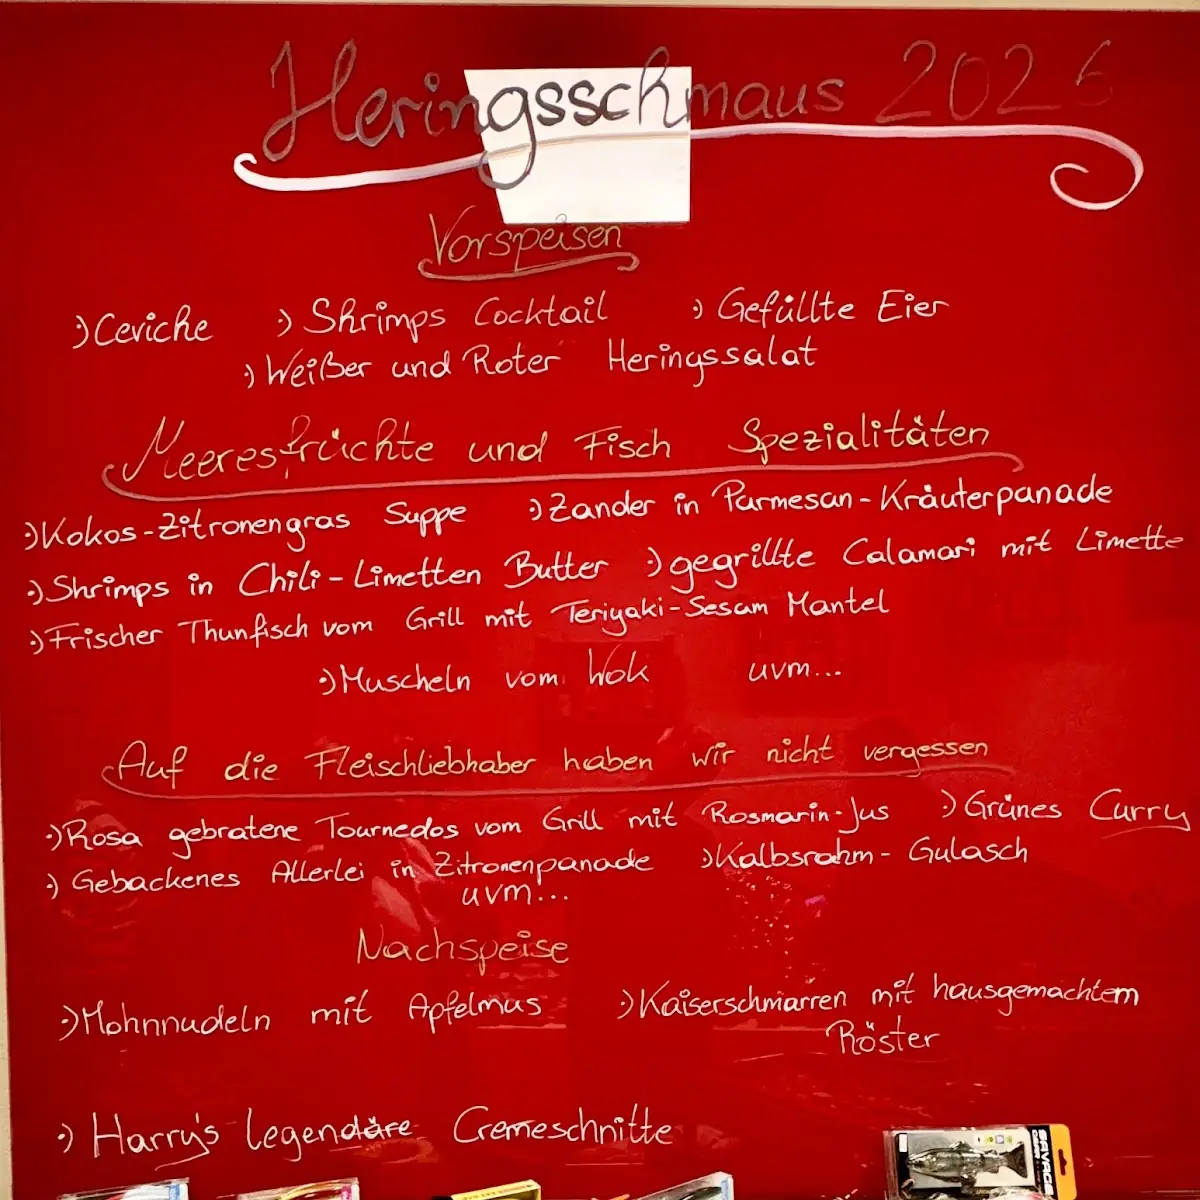 Heringsschmaus 2026
Vorspeisen
:) Ceviche :) Shrimps Cocktail :) Gefüllte Eier
:) Weißer und Roter Heringssalat
Meeresfrüchte und Fisch Spezialitäten
:) Kokos-Zitronengras Suppe :) Zander in Parmesan-Kräuterpanade
:) Shrimps in Chili-Limetten Butter :) gegrillte Calamari mit Limette
:) Frischer Thunfisch vom Grill mit Teriyaki-Sesam Mantel
:) Muscheln vom Wok uvm...
Auf die Fleischliebhaber haben wir nicht vergessen
:) Rosa gebratene Tournedos vom Grill mit Rosmarin-Jus :) Grünes Curry
:) Gebackenes Allerlei in Zitronenpanade :) Kalbsrahm-Gulasch
uvm...
Nachspeise
:) Mohnnudeln mit Apfelmus :) Kaiserschmarren mit hausgemachtem
Röster
:) Harry's legendäre Cremeschnitte